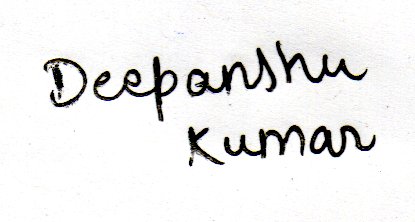 Deepanshu
Kumar